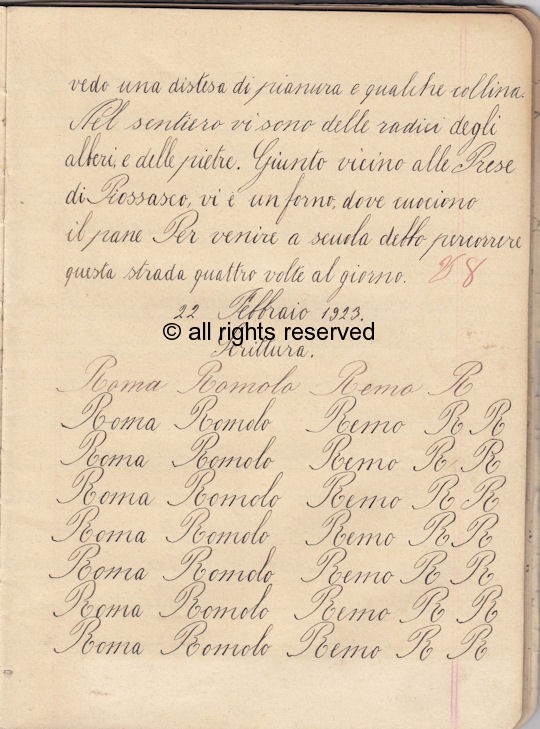 vedo una distesa di pianura e qualche collina.
Nel sentiero vi sono delle radici degli
alberi, e delle pietre. Giunto vicino alle Prese
di Piossasco, vi è un forno, dove cuociono
il pane Per venire a scuola debbo percorrere
questa strada quattro volte al giorno. 8
22 Febbraio 1923.
© all rights reserved
Scrittura.
Roma Romolo Remo R
Roma Romolo Remo R R
Roma Romolo Remo R R
Roma Romolo Remo R R
Roma Romolo Remo R R
Roma Romolo Remo R R
Roma Romolo Remo R R
Roma Romolo Remo R R